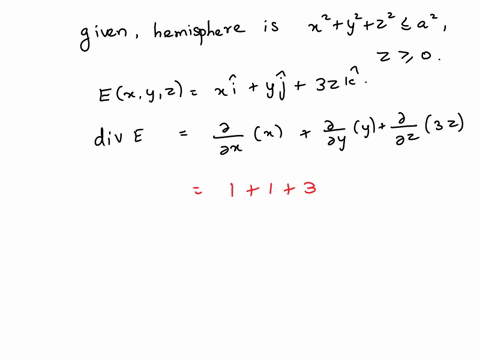 given, hemisphere is x²+y²+z² ≤ a²,
z ≥ 0.
E(x,y,z) = xî + yĵ + 3zk̂.
div E = ∂/∂x (x) + ∂/∂y (y) + ∂/∂z (3z)
= 1 + 1 + 3